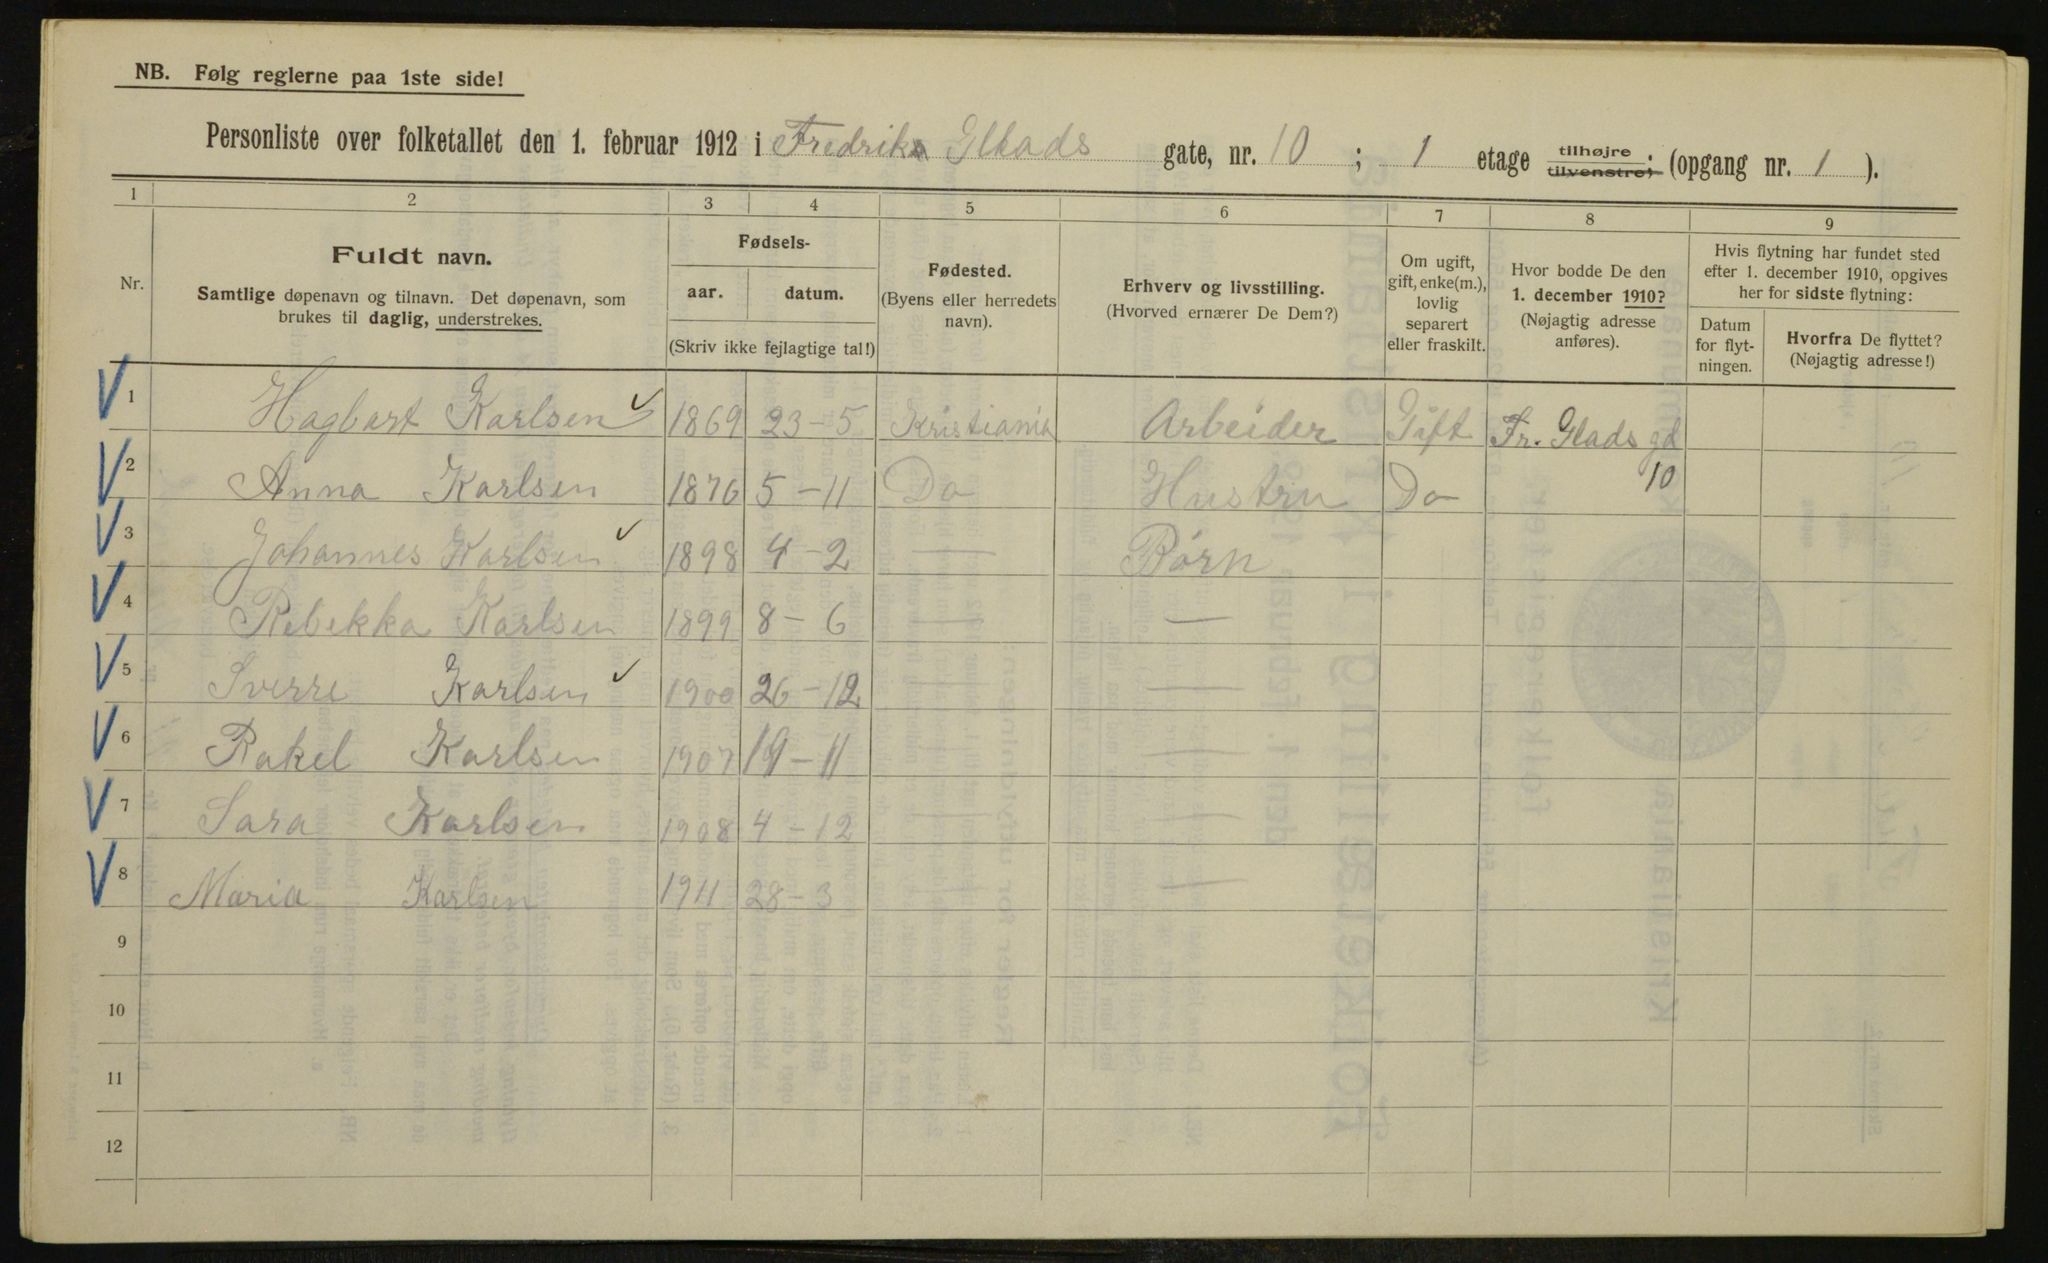 NB. Følg reglerne paa 1ste side!
Personliste over folketallet den 1. februar 1912 i Fredrik Glads gate, nr. 10 ; 1 etage tilhøjre. tilvenstre; (opgang nr. 1 ).
1 2 3 4 5 6 7 8 9
Nr.
Fuldt navn.
Samtlige døpenavn og tilnavn. Det døpenavn, som
brukes til daglig, understrekes.
Fødsels-
aar. datum.
(Skriv ikke fejlagtige tal!)
Fødested.
(Byens eller herredets
navn).
Erhverv og livsstilling.
(Hvorved ernærer De Dem?)
Om ugift,
gift, enke(m.),
lovlig
separert
eller fraskilt.
Hvor bodde De den
1. december 1910?
(Nøjagtig adresse
anføres).
Hvis flytning har fundet sted
efter 1. december 1910, opgives
her for sidste flytning:
Datum
for flyt-
ningen.
Hvorfra De flyttet?
(Nøjagtig adresse!)
1 Hagbart Karlsen 1869 23-5 Kristiania Arbeider Gift Fr. Glads gd
2 Anna Karlsen 1876 5-11 Do Hustru Do 10
3 Johannes Karlsen 1898 4-2 — Børn
4 Rebekka Karlsen 1899 8-6 — —
5 Sverre Karlsen 1900 26-12 — —
6 Rakel Karlsen 1907 19-11 — —
7 Sara Karlsen 1908 4-12 — —
8 Maria Karlsen 1911 28-3 — —
9
10
11
12